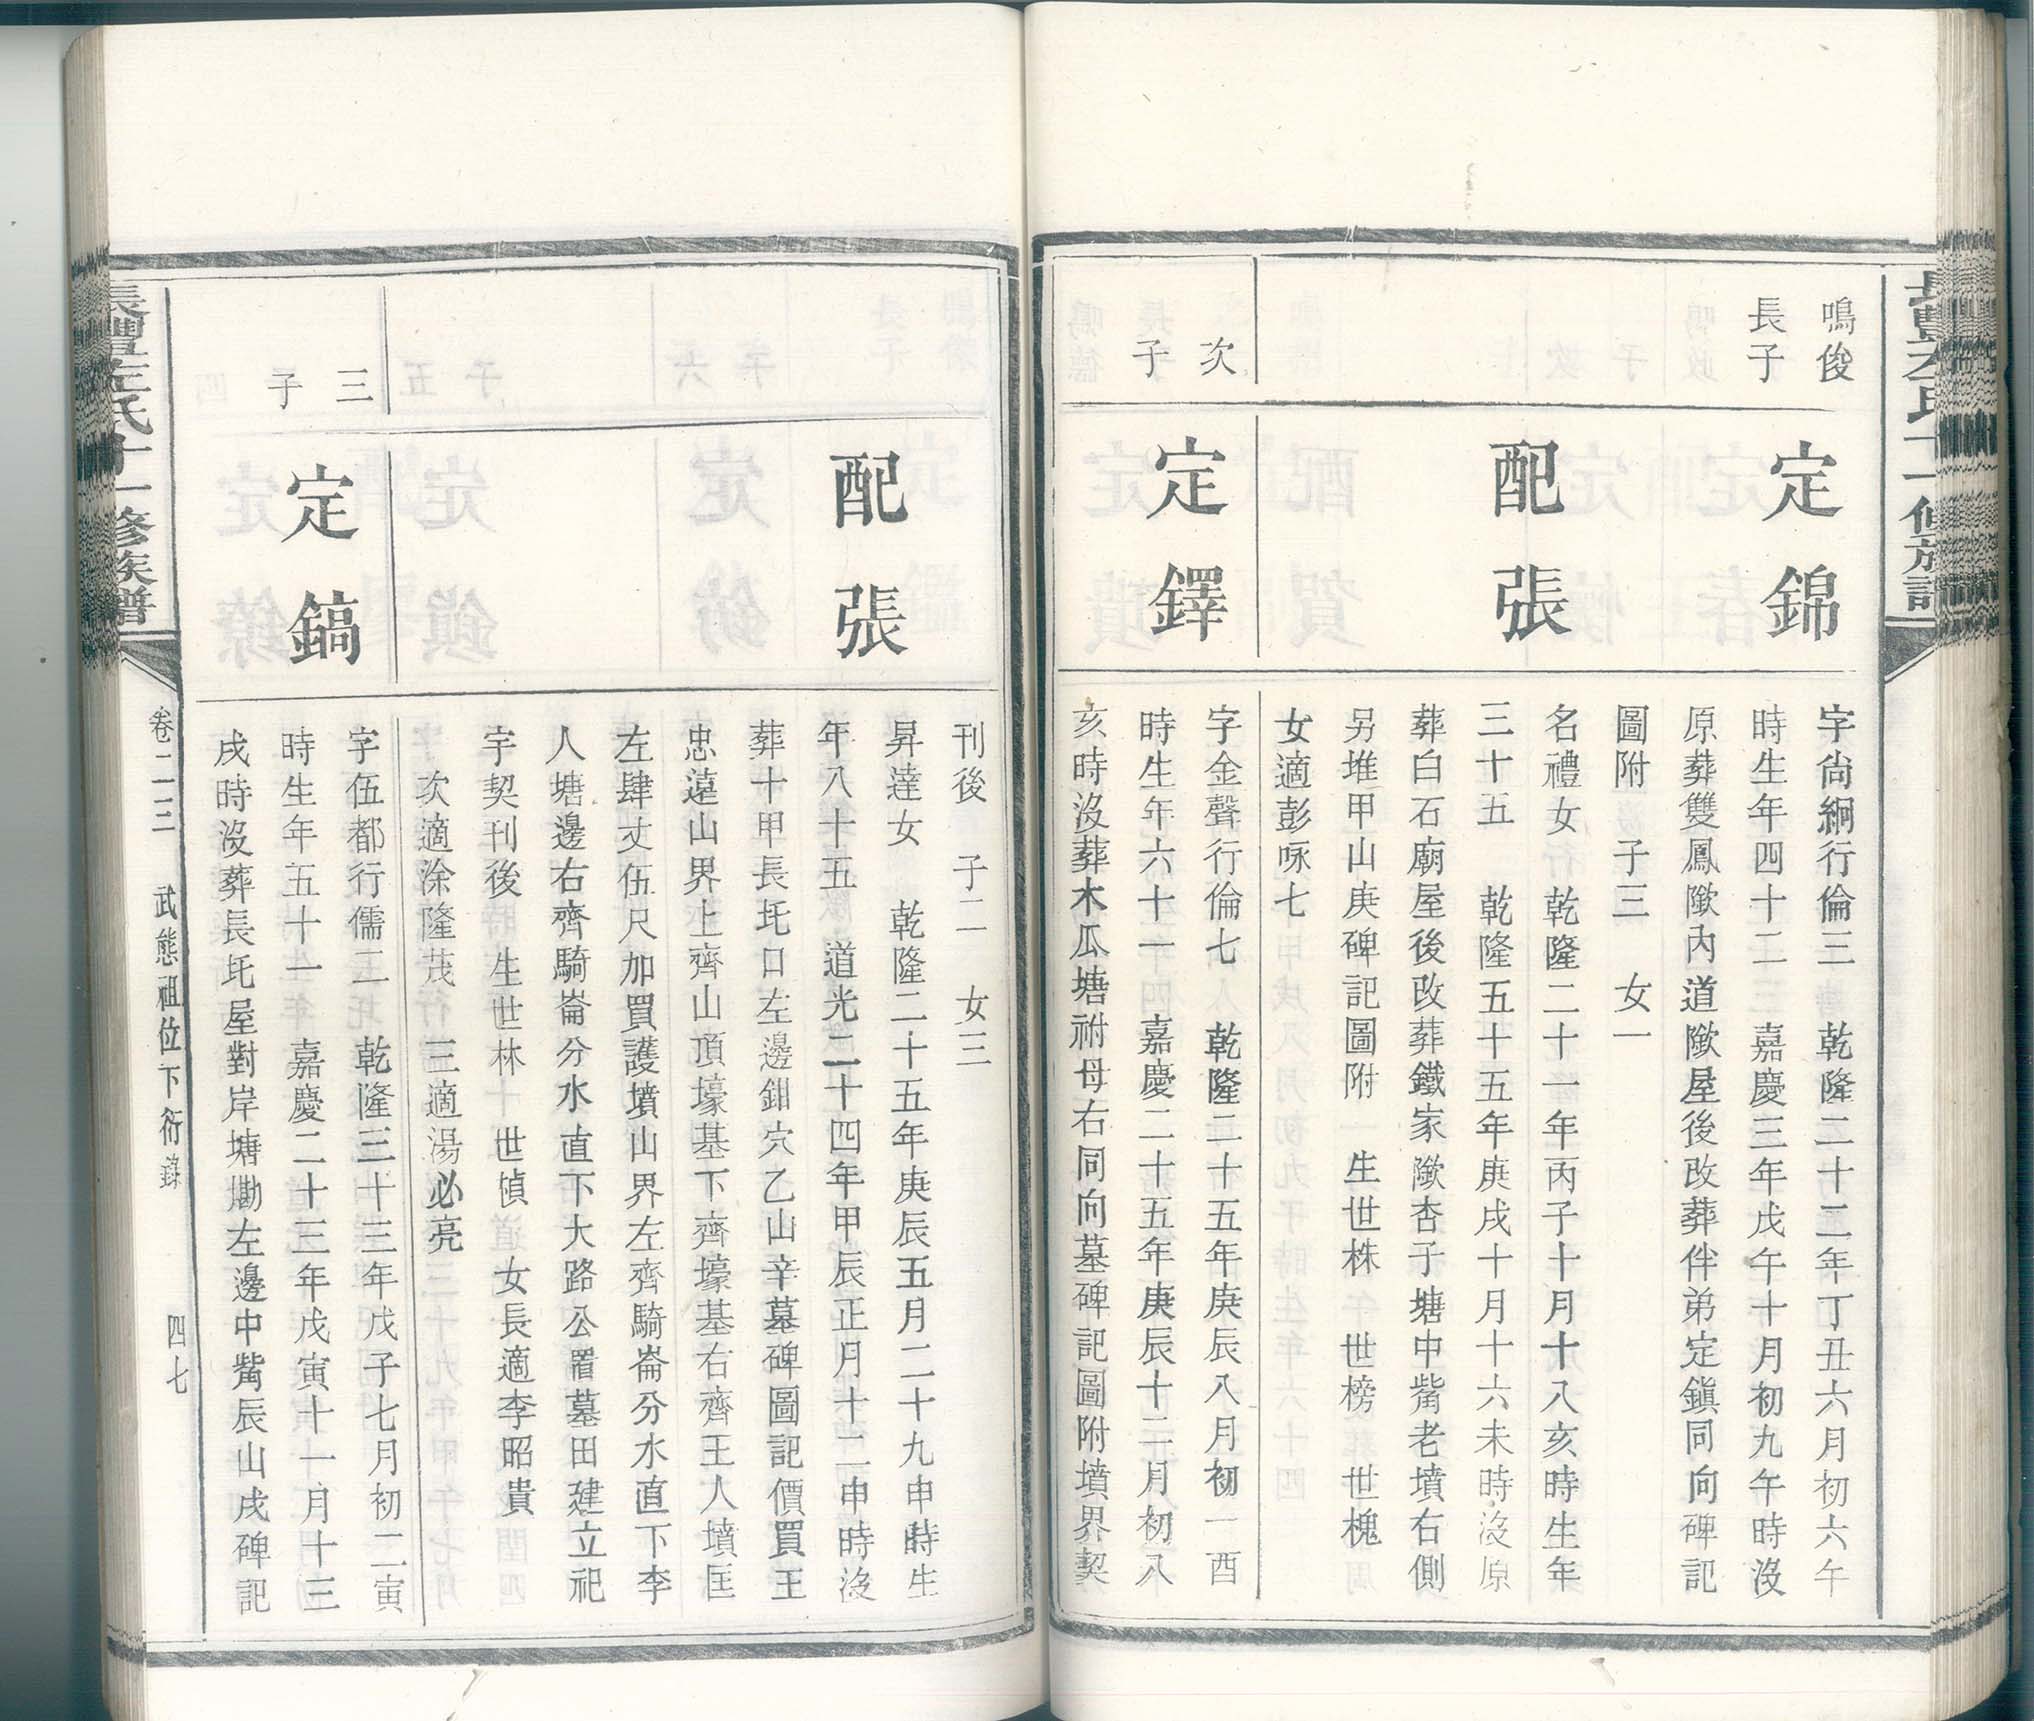 鳴俊
長子
定錦
字尙絅行倫三　乾隆二十二年丁丑六月初六午
時生年四十二　嘉慶三年戊午十月初九午時沒
原葬雙鳳歘內道歘屋後改葬伴弟定鎭同向碑記
圖附　子三　女一
配張
名禮女　乾隆二十一年丙子十月十八亥時生年
三十五　乾隆五十五年庚戌十月十六未時沒原
葬白石廟屋後改葬鐵家歘杏子塘中觜老墳右側
另堆甲山庚碑記圖附　生世株　世榜　世槐
女適彭咏七
次
子
定鐸
字金聲行倫七　乾隆二十五年庚辰八月初一酉
時生年六十一　嘉慶二十五年庚辰十二月初八
亥時沒葬木瓜塘祔母右同向墓碑記圖附墳界契
刊後　子二　女三
配張
昇達女　乾隆二十五年庚辰五月二十九申時生
年八十五　道光二十四年甲辰正月十二申時沒
葬十甲長圫口左邊鉗穴乙山辛墓碑圖記價買王
忠遠山界上齊山頂壕基下齊壕基右齊王人墳匡
左肆丈伍尺加買護墳山界左齊騎崙分水直下李
人塘邊右齊騎崙分水直下大路公置墓田建立祀
宇契刊後　生世林　世偵　女長適李昭貴
次適涂隆茂　三適湯必亮
三
子
定鎬
字伍都行儒二　乾隆三十三年戊子七月初二寅
時生年五十一　嘉慶二十三年戊寅十一月十三
戌時沒葬長圫屋對岸塘磡左邊中觜辰山戌碑記
長豐左氏十一修族譜
卷二三　武態祖位下衍錄　四七